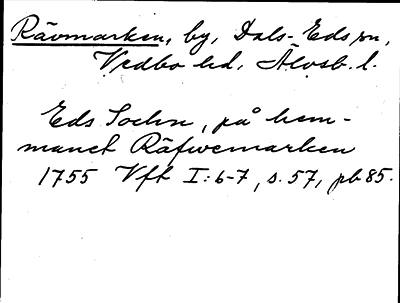 Rävmarken, by, Dals-Eds sn,
Vedbo hd, Älvsb. l.
Eds Sochn, på hem-
manet Räfwemarken
1755 Vfk I:6-7, s. 57, pb 85.